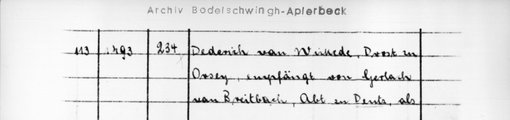 Archiv Bodelschwingh-Aplerbeck
113 1493 234 Dederich van Wickede, Drost zu
Orsey, empfängt von Gerlach
van Breitbach, Abt zu Deutz, als